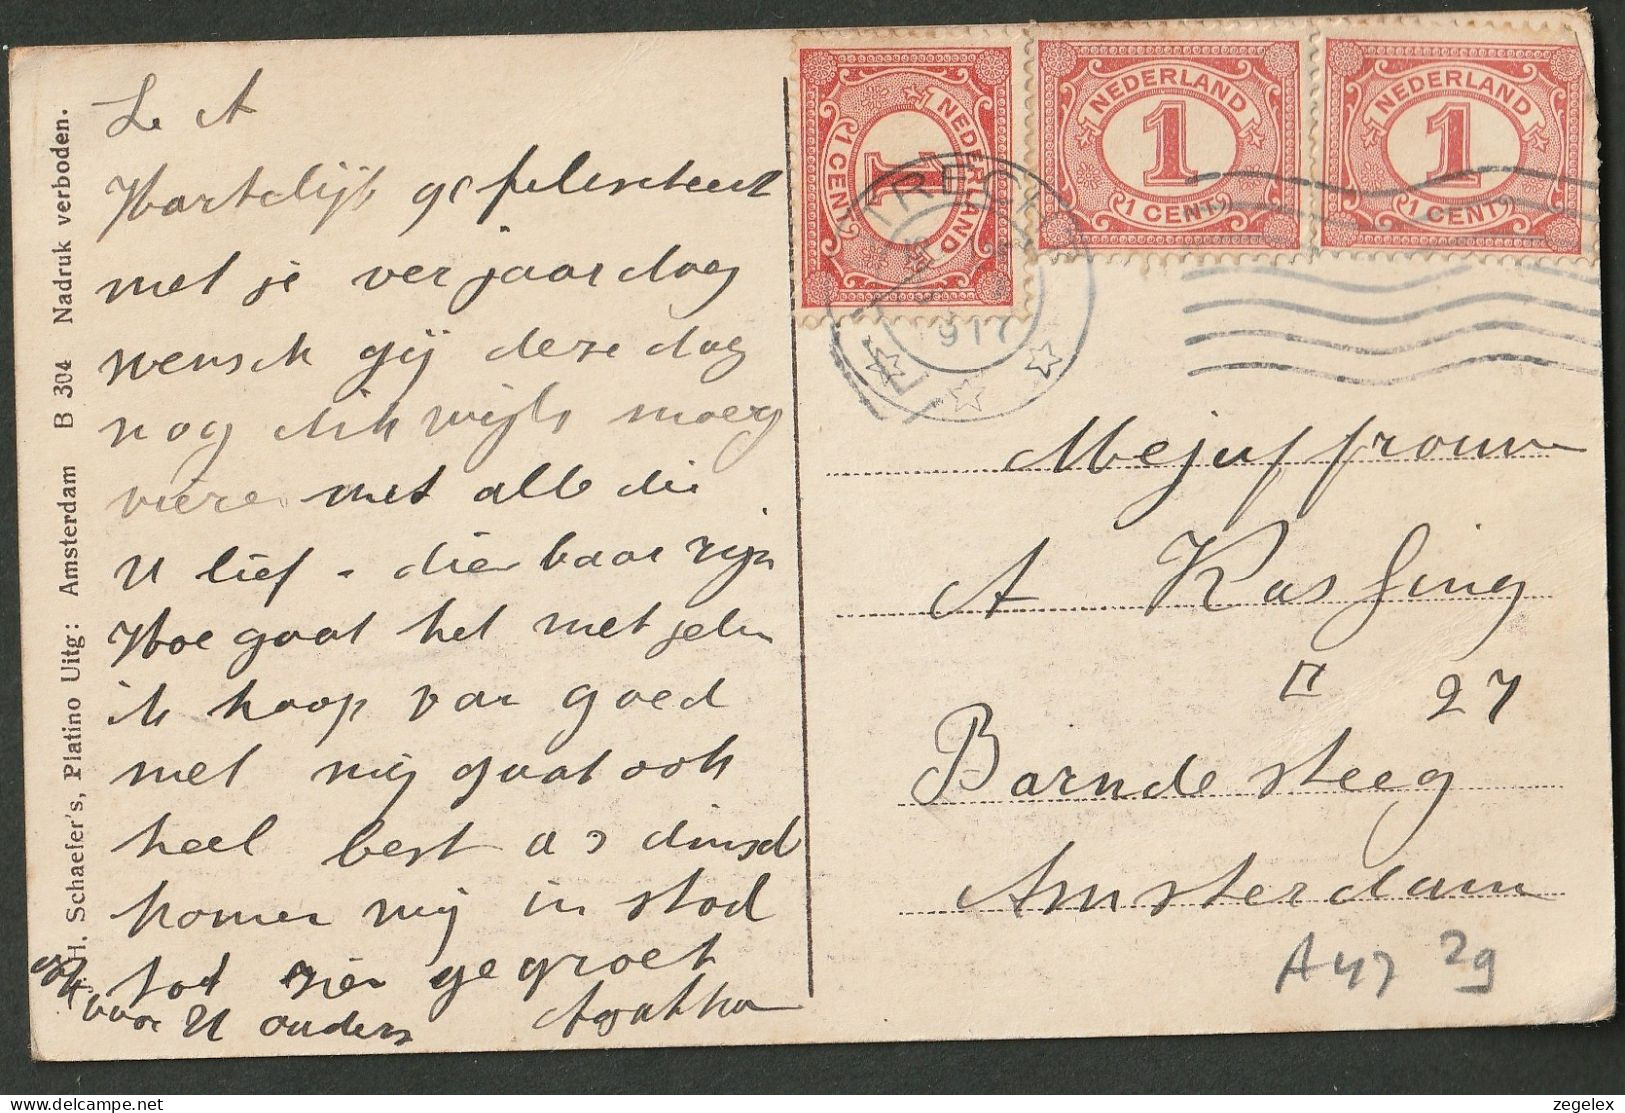 L. A
Hartelijk gefeliciteerd
met je verjaardag
wensch gij deze dag
nog dikwijls moeg
viere met alle die
U lief - dierbaar zijn
Hoe gaat het met jelui
ik hoop van goed
met mij gaat ook
heel best as dinsd
komen mij in stad
tot zien gegroet
Agatha
voor U ouders
H. Schaefer's, Platino Uitg: Amsterdam B 304 Nadruk verboden.
NEDERLAND
1
1 CENT
NEDERLAND
1
1 CENT
NEDERLAND
1
1 CENT
TRECH
Mejuffrouw
A Kassing
II 27
Barndesteeg
Amsterdam
A47 29
delcampe.net
zegelex